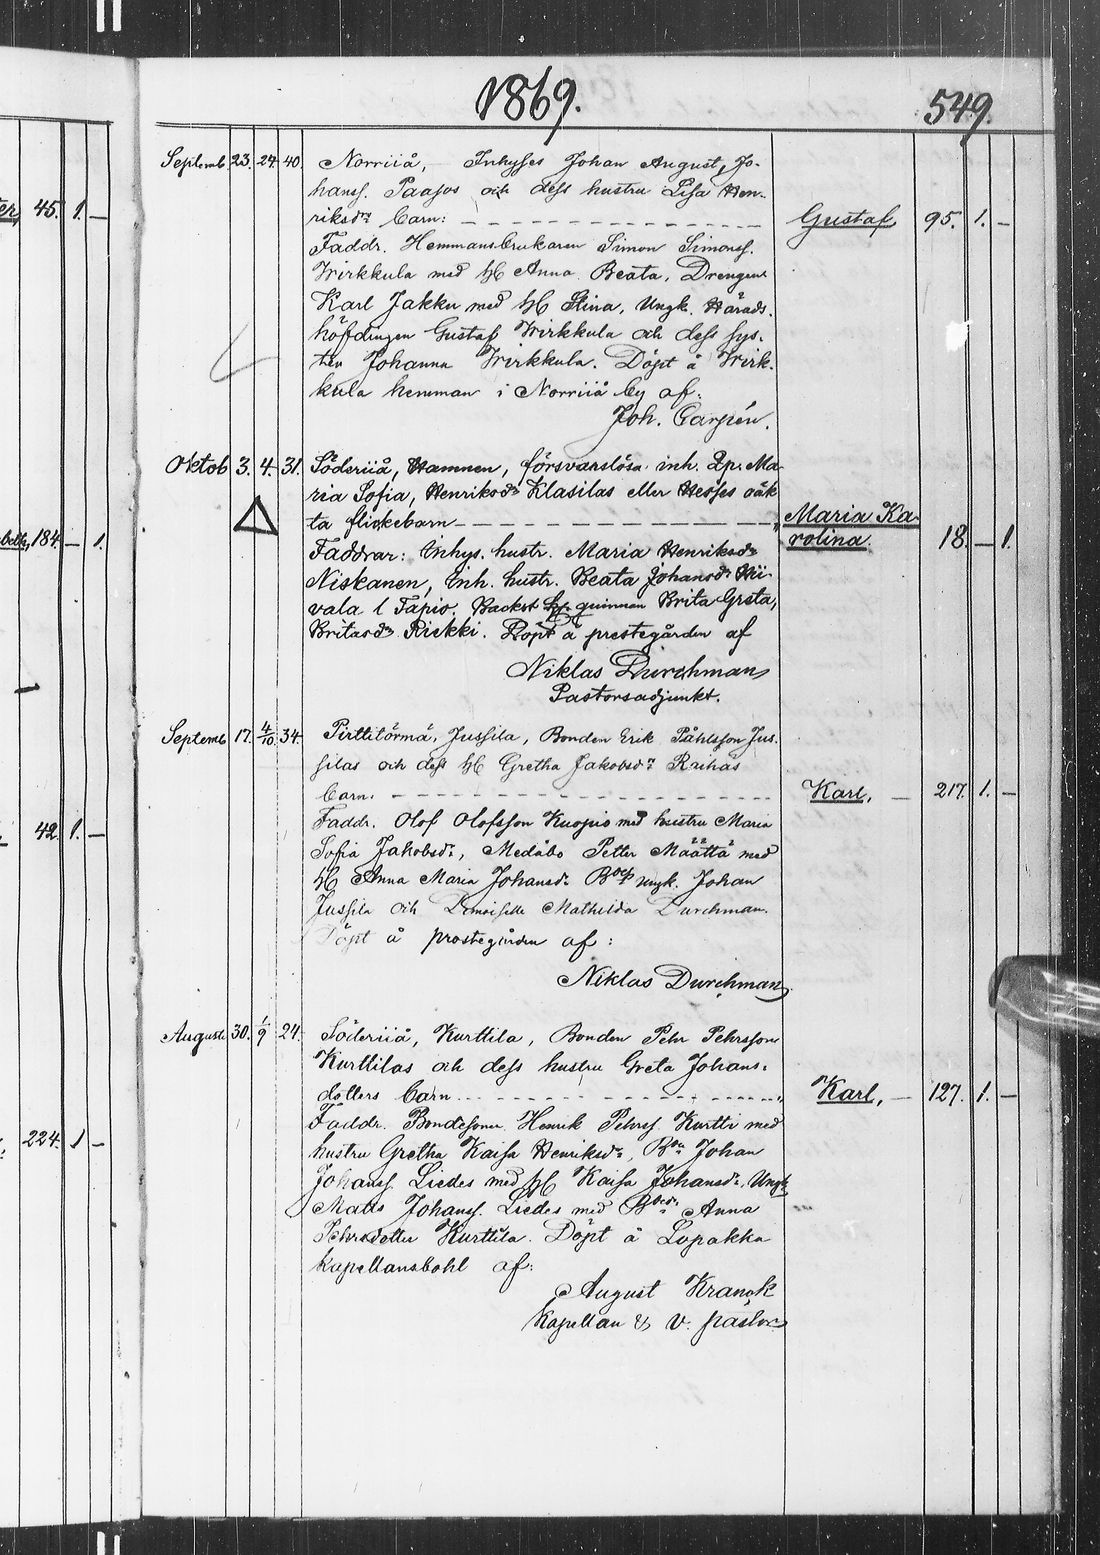 1869.
549.
Septemb. 23. 24. 40. Norriiå, Inhyses Johan August, Jo-
hanss. Paasos och dess hustru Lisa Hen-
riksdr Barn: Gustaf 95. 1. –
Faddr. Hemmansbrukaren Simon Simonss.
Wirkkula med H Anna Beata, Drengen
Karl Jakku med H Stina, Ungk. Härads-
höfdingen Gustaf Wirkkula och dess sys-
ter Johanna Wirkkula. Döpt å Wirk-
kula hemman i Norriiå by af:
Joh. Carpén.
Oktob 3. 4. 31. Söderiiå, Hamnen, försvarslösa inh. Ma-
ria Sofia, Henriksdr Klasilas eller Hesses oäk
ta flickebarn Maria Ka-
rolina. 18. – 1.
Faddrar: Inhys. hustr. Maria Henriksdr
Niskanen, Inh. hustr. Beata Johansdr Hii-
vala l Tapio. Backst quinnan Brita Greta,
Britasdr Riekki. Döpt å prestegården af
Niklas Durchman
Pastorsadjunkt.
Septemb 17. 4/10. 34. Pirttitörmä, Jussila, Bonden Erik Påhlsson Jus-
silas och dess H Gretha Jakobsdr Raihas
Barn. Karl, 217. 1. –
Faddr. Olof Olofsson Kuopio med hustru Maria
Sofia Jakobsdr, Medåbo Petter Määttä med
H Anna Maria Johansdr ungk. Johan
Jussila och Demoiselle Mathilda Durchman.
Döpt å prostegården af:
Niklas Durchman
Augusti 30. 1/9 24. Söderiiå, Kurttila, Bonden Pehr Pehrsson
Kurttilas och dess hustru Greta Johans-
dotters Barn Karl, 127. 1. –
Faddr. Bondesonen Henrik Pehrss. Kurtti med
hustru Gretha Kaisa Henriksdr, Bdn Johan
Johanss. Liedes med H Kaisa Johansdr, Ungk
Matts Johanss. Liedes med Anna
Pehrsdotter Kurttila. Döpt å Lopakka
kapellansbohl af:
August Kranck
Kapellan & v. pastor
45. 1. –
184. – 1.
42. 1. –
224. 1 –